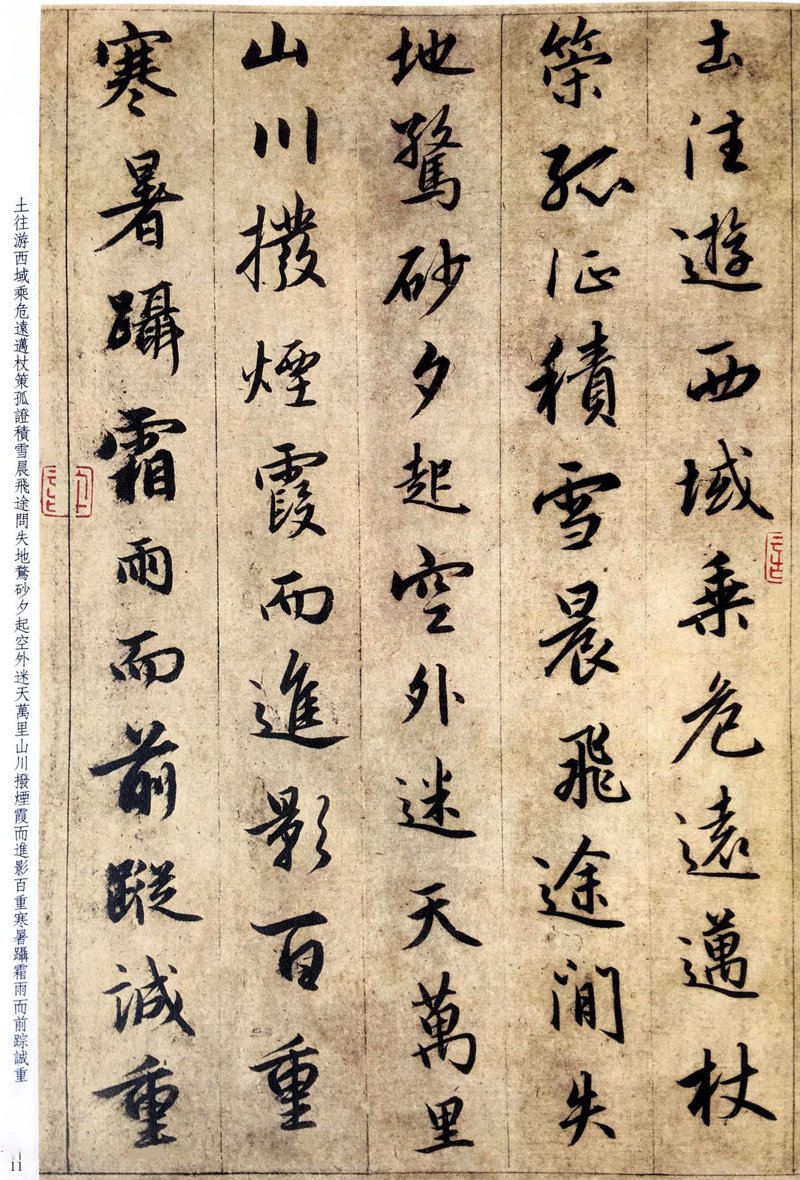 土往遊西域乗危遠邁杖
策孤征積雪晨飛途間失
地驚砂夕起空外迷天萬里
山川撥煙霞而進影百重
寒暑躡霜雨而前蹤誠重
土往游西域乘危遠邁杖策孤證積雪晨飛途問失地驚砂夕起空外迷天萬里山川撥煙霞而進影百重寒暑躡霜雨而前踪誠重
11